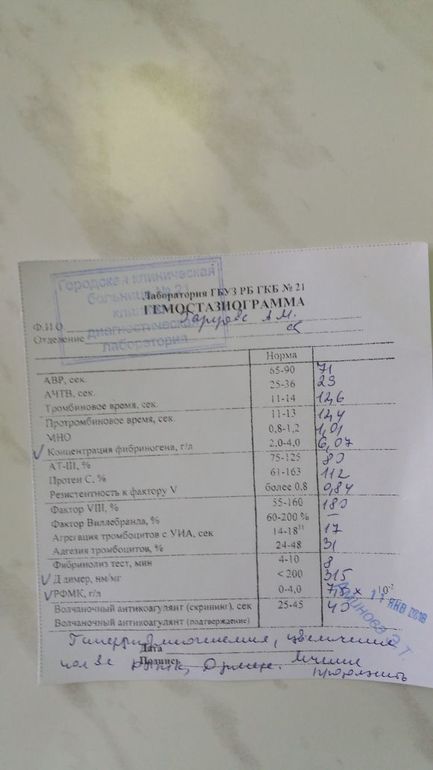 Городская клиническая
больница № 21
клинико
диагностическая
лаборатория
Лаборатория ГБУЗ РБ ГКБ № 21
ГЕМОСТАЗИОГРАММА
Ф.И.О. А.М.
Отделение
Норма
АВР, сек. 65-90 71
АЧТВ, сек. 25-36 29
Тромбиновое время, сек. 11-14 12,6
Протромбиновое время, сек. 11-13 12,4
МНО 0,8-1,2 1,01
Концентрация фибриногена, г/л 2,0-4,0 6,07
АТ-III, % 75-125 80
Протеин С, % 61-163 112
Резистентность к фактору V более 0,8 0,84
Фактор VIII, % 55-160 180
Фактор Виллебранда, % 60-200 % –
Агрегация тромбоцитов с УИА, сек 14-18 17
Адгезия тромбоцитов, % 24-48 31
Фибринолиз тест, мин 4-10 8
Д димер, нм/мг < 200 315
РФМК, г/л 0-4,0 x 10⁻²
Волчаночный антикоагулянт (скрининг), сек 25-45 40
Волчаночный антикоагулянт (подтверждение)
Гиперфибриногенемия, увеличение
Дата
Подпись
продолжить